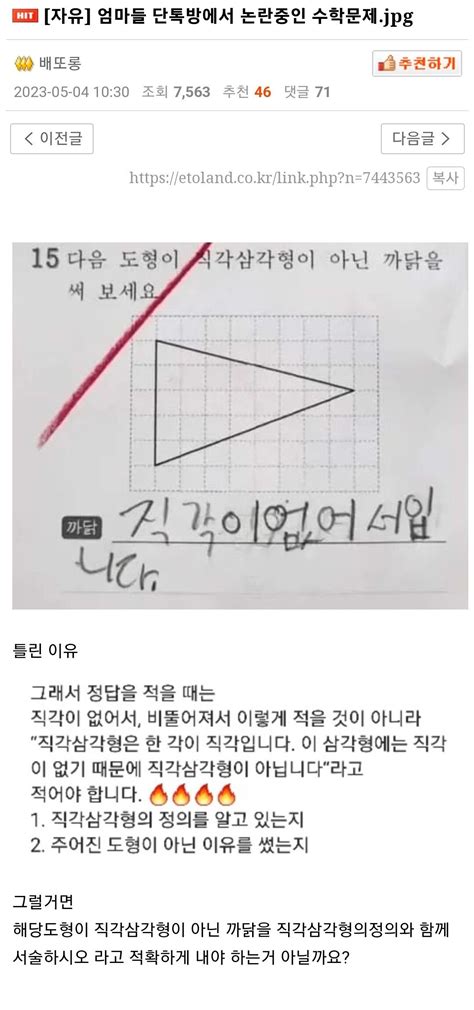 HIT [자유] 엄마들 단톡방에서 논란중인 수학문제.jpg
배또롱
추천하기
2023-05-04 10:30 조회 7,563 추천 46 댓글 71
< 이전글
다음글 >
https://etoland.co.kr/link.php?n=7443563 복사
15 다음 도형이 직각삼각형이 아닌 까닭을
써 보세요.
까닭 직각이없어서입
니다.
틀린 이유
그래서 정답을 적을 때는
직각이 없어서, 비뚤어져서 이렇게 적을 것이 아니라
"직각삼각형은 한 각이 직각입니다. 이 삼각형에는 직각
이 없기 때문에 직각삼각형이 아닙니다"라고
적어야 합니다. 🔥🔥🔥🔥
1. 직각삼각형의 정의를 알고 있는지
2. 주어진 도형이 아닌 이유를 썼는지
그럴거면
해당도형이 직각삼각형이 아닌 까닭을 직각삼각형의정의와 함께
서술하시오 라고 적확하게 내야 하는거 아닐까요?